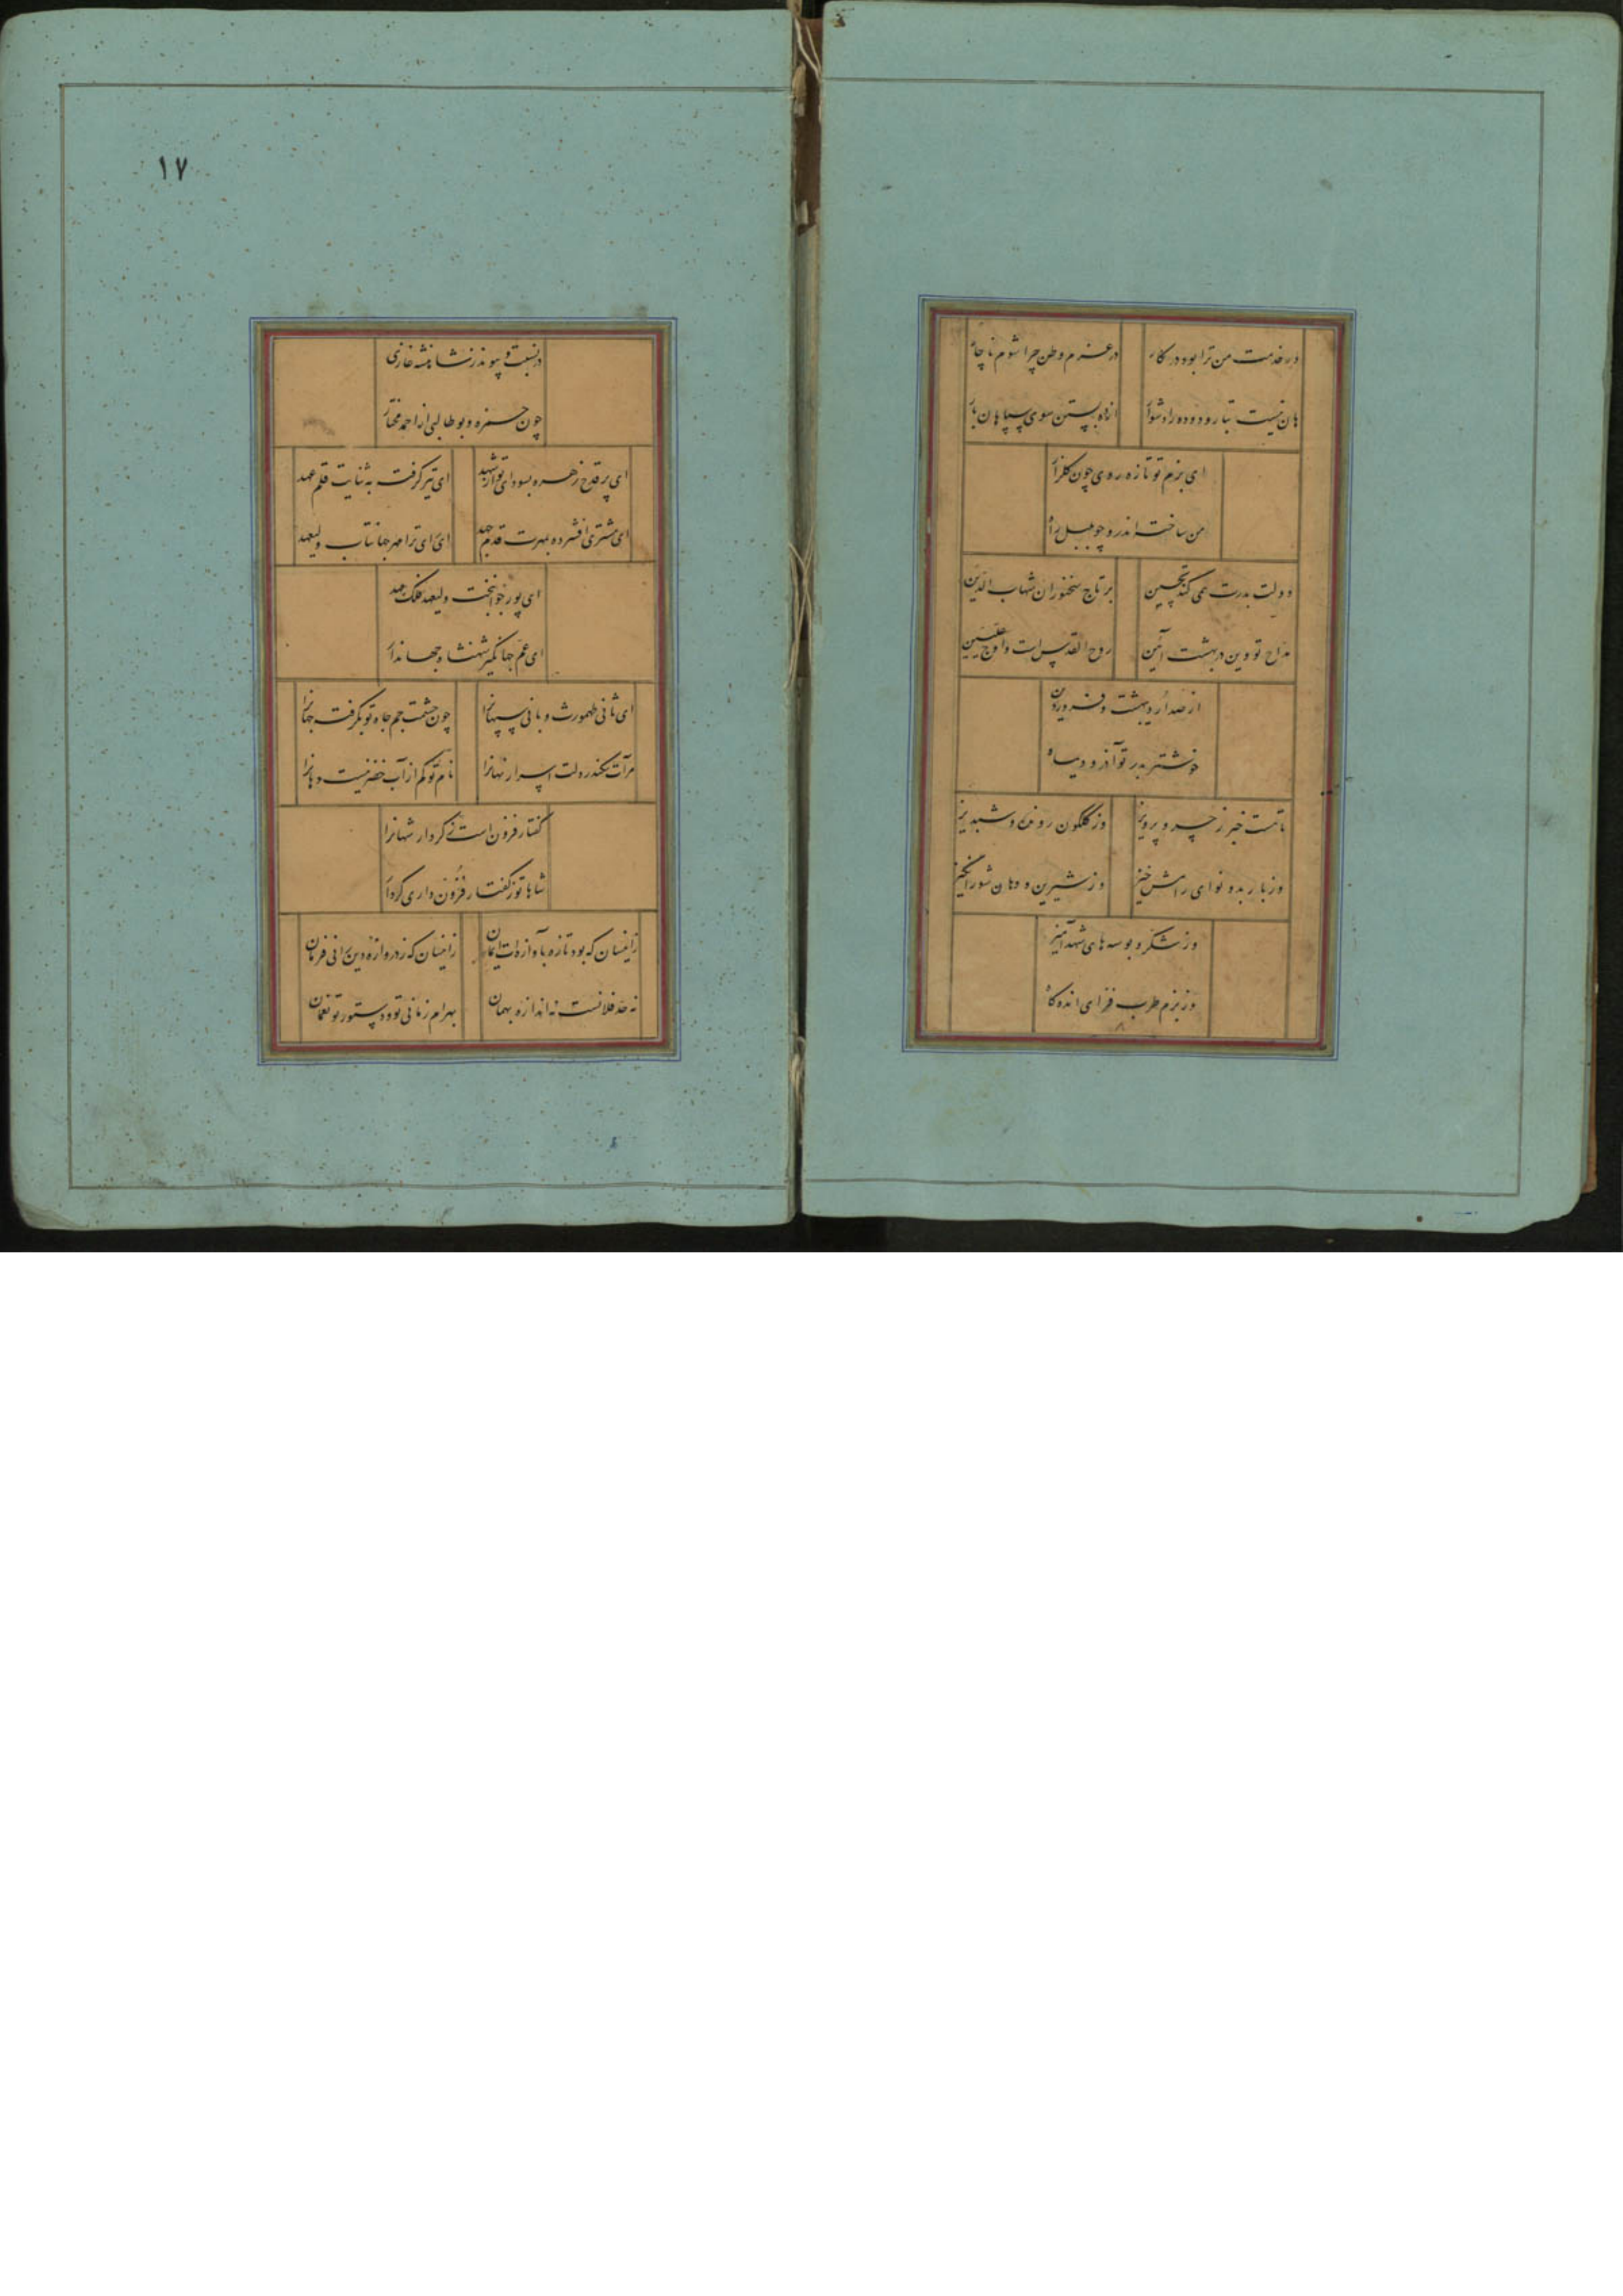 ور خدمت من ترا بود در کار
در عزم وطن چرا شوم ناچار
هان نیست تبار و دوده را دشوار
بستن سوی سپاهان بار
ای بزم تو تازه روی چون گلزار
من ساخته اندرو چو بلبل
دولت بدرت همی کند
بر تاج سخنوران شهاب الدین
مداح تو وین در بهشت آئین
روح القدس است و اوج علیین
از صد اردیبهشت و فروردین
خوشتر بدر تو آذر و دیماه
تا هست خبر ز خسرو پرویز
وز گلگون رونده و شبدیز
وز باربد و نوای رامش خیز
وز شیرین و دهان شورانگیز
وز شکر و بوسه های شهد آمیز
وز بزم طرب فزای انده کاه
۱۷
در نسبت و پیوند ز شاهنشه غازی
چون حمزه و بوطالبی از احمد مختار
ای پر قدح زهره بسودای تو از شهد
ای تیر گرفت به ثنایت قلم عهد
ای مشتری افشرده بمهرت قدم جهد
ای رای ترا مهر جهانتاب ولیعهد
ای پور جوانبخت ولیعهد فلک مهد
ای عم جهانگیر شهنشاه جهاندار
ای ثانی طهمورث و بانی سپهانرا
چون حشمت جم جاه تو بگرفت جهانرا
مرآت سکندر دلت اسرار نهانرا
نام تو کم از آب خضر نیست دهانرا
گفتار فزون است نه کردار شهانرا
شاها تو ز گفتار فزون داری کردار
زانسان که بود تازه بآوازه ات ایمان
زانسان که ز دروازه دین رانی فرمان
نه حد فلانست نه اندازه بهمان
بهرام زمانی تو و دستور تو نعمان